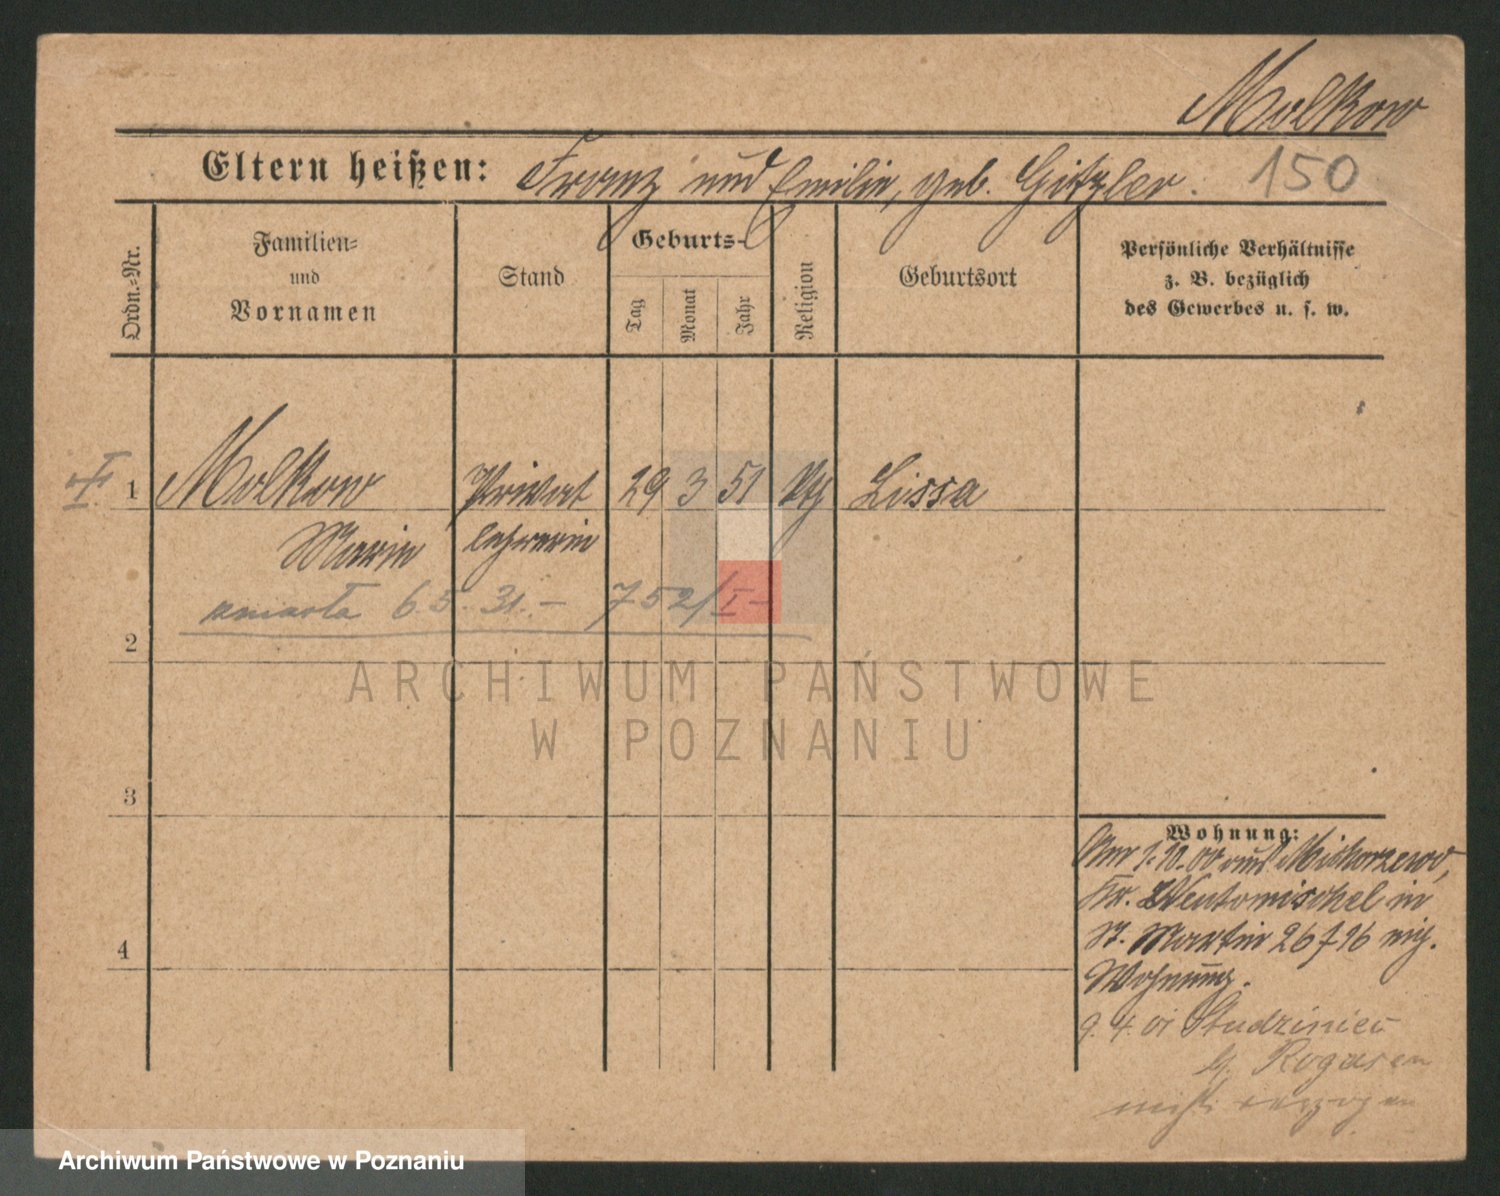 Molkow
Eltern heißen: Franz und Emilie, geb. Gitzler. 150
Ordn.-Nr.
Familien- und Vornamen
Stand
Geburts-
Tag
Monat
Jahr
Religion
Geburtsort
Persönliche Verhältnisse
z. B. bezüglich
des Gewerbes u. s. w.
1 Molkow Privat 29 3 51 Lissa
Marie lehrerin
zmarła 6.5. 31. – 752/I –
2
3
4
Wohnung:
1.10.00 aus
Kr. Neutomischel in
St. Martin 26
Wohnung.
9. 4. 01 Studziniec
b. Rogasen
nicht verzogen
ARCHIWUM PAŃSTWOWE
W POZNANIU
Archiwum Państwowe w Poznaniu